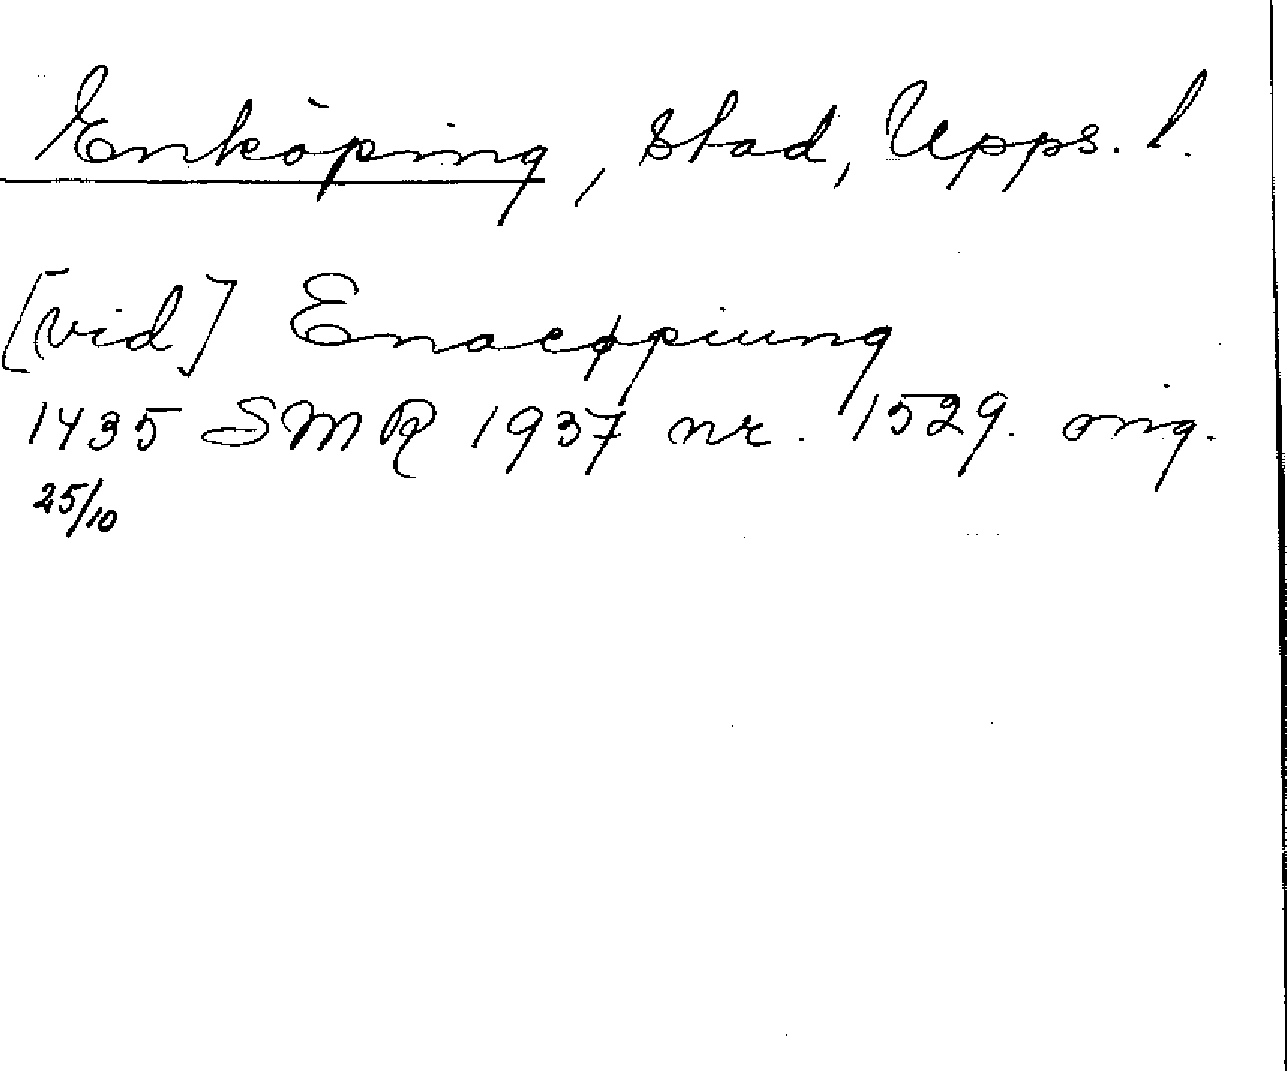 Enköping, stad, Upps. l.
[vid] Enacøpiung
1435 SMR 1937 nr. 1529. orig.
25/10